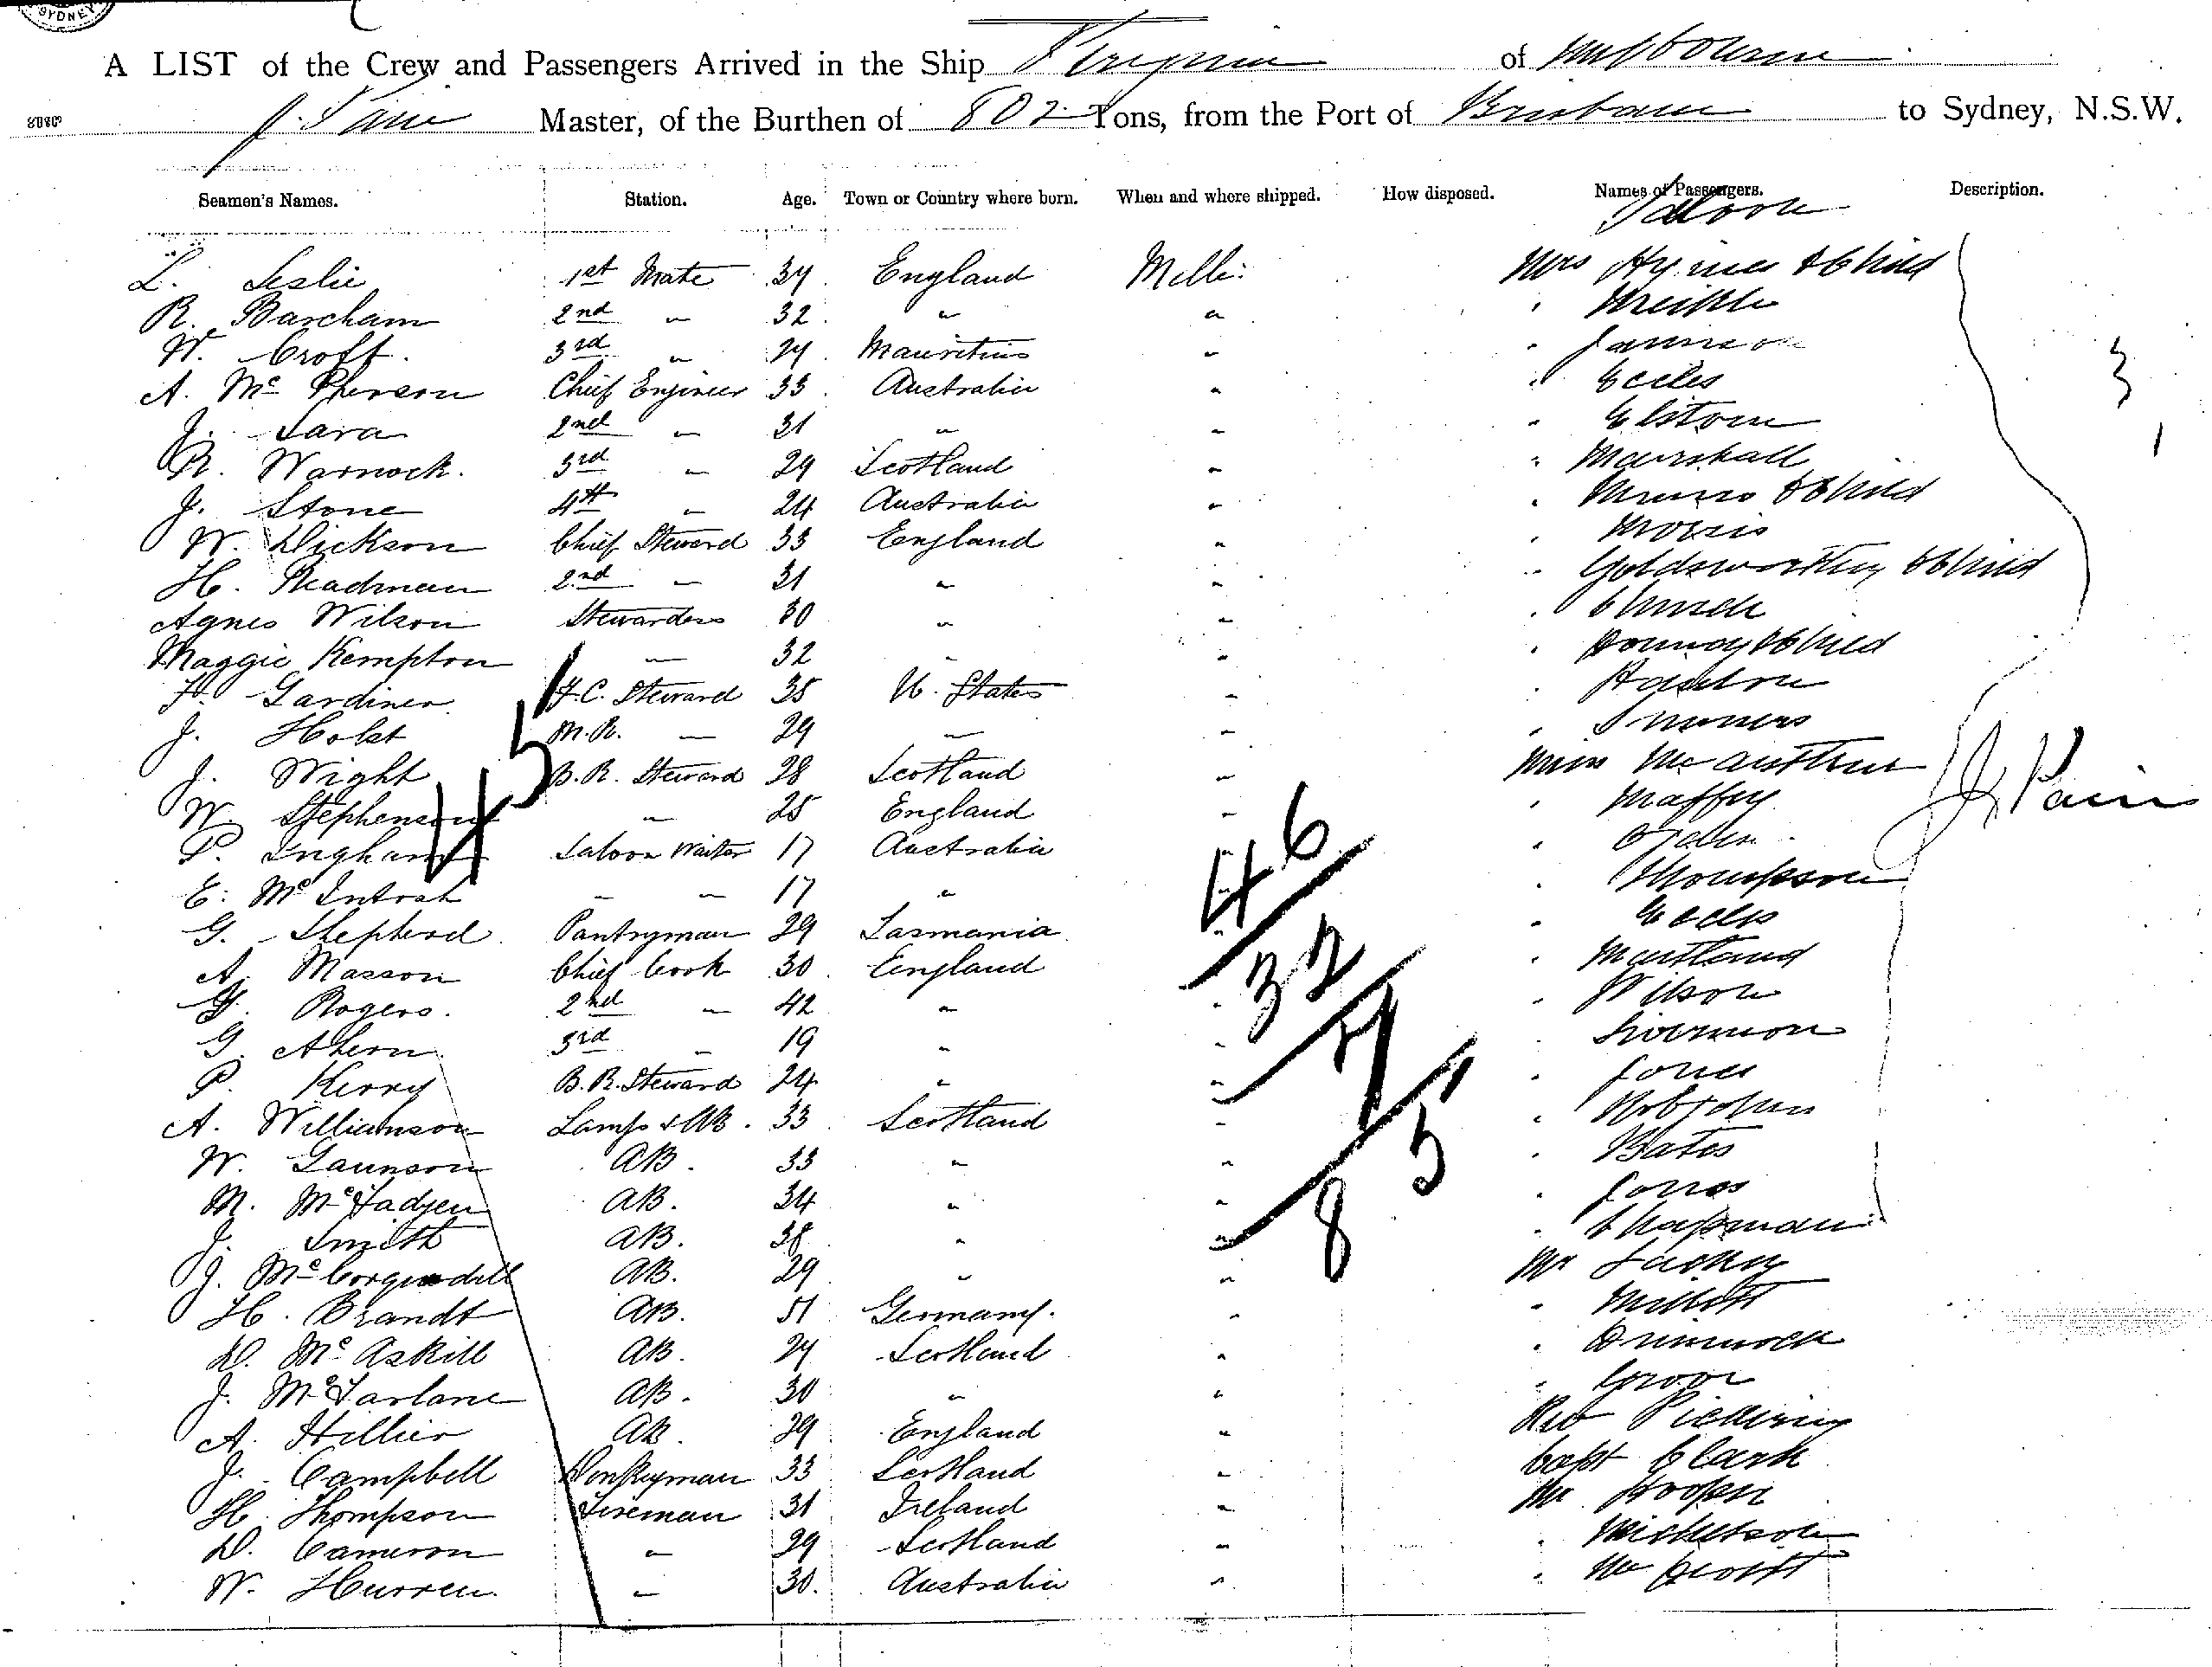 SYDNEY
A LIST of the Crew and Passengers Arrived in the Ship of Melbourne
J. Pain Master, of the Burthen of 802 Tons, from the Port of Brisbane to Sydney, N.S.W.
Seamen's Names. Station. Age. Town or Country where born. When and where shipped. How disposed. Names of Passengers. Description.
Saloon
L. Leslie 1st Mate 34 England Melb: Mrs Hymes & Child
R. Barcham 2nd " 32 " "
W. Croft. 3rd " 24 Mauritius " " Jamieson
A. Mc Pherson Chief Engineer 33 Australia " " Eccles
J. Sara 2nd " 31 " " "
R. Warnock. 3rd " 29 Scotland " " Marshall
J. Stone 4th " 24 Australia " " Munro & Child
W. Dickson Chief Steward 33 England " " Morris
H. Steadman 2nd " 31 " " " Goldsworthy & Child
Agnes Wilson Stewardess 30 " " " Church
Maggie Kempton " 32 " " " & Child
H. Gardiner F.C. Steward 35 U. States "
J. Holst M.R. " 29 " "
J. Wight B.R. Steward 28 Scotland " Miss McArthur J. Pain
W. Stephenson " 25 England " " Maffey
P. Ingham Saloon Waiter 17 Australia " " Ogden
E. Mc Intosh " " 17 " " Thompson
G. Shepherd Pantryman 29 Tasmania " " Eccles
A. Masson Chief Cook 30 England " Maitland
F. Rogers. 2nd " 42 " " " Wilson
G. Ahern 3rd " 19 " "
P. Kerry B.R. Steward 24 " " " Jones
A. Williamson Lamps & AB. 33 Scotland "
W. Gaunson AB. 33 " " " Bates
M. McFadyen AB. 34 " " " Jones
J. Smith AB. 38 " " " Chapman
J. McCorquodill AB. 29 " " Mr
H. Brandt AB. 51 Germany. "
D. Mc Askill AB. 24 Scotland " " Dimmock
J. McFarlane AB. 30 " "
A. Hillier AB. 29 England " Rev Pickering
J. Campbell Donkeyman 33 Scotland " Capt Clark
H. Thompson Fireman 31 Ireland " Mr Hooper
D. Cameron " 29 Scotland " " Michelson
W. Hurren " 30. Australia "
45
46
32
7
85
3
1